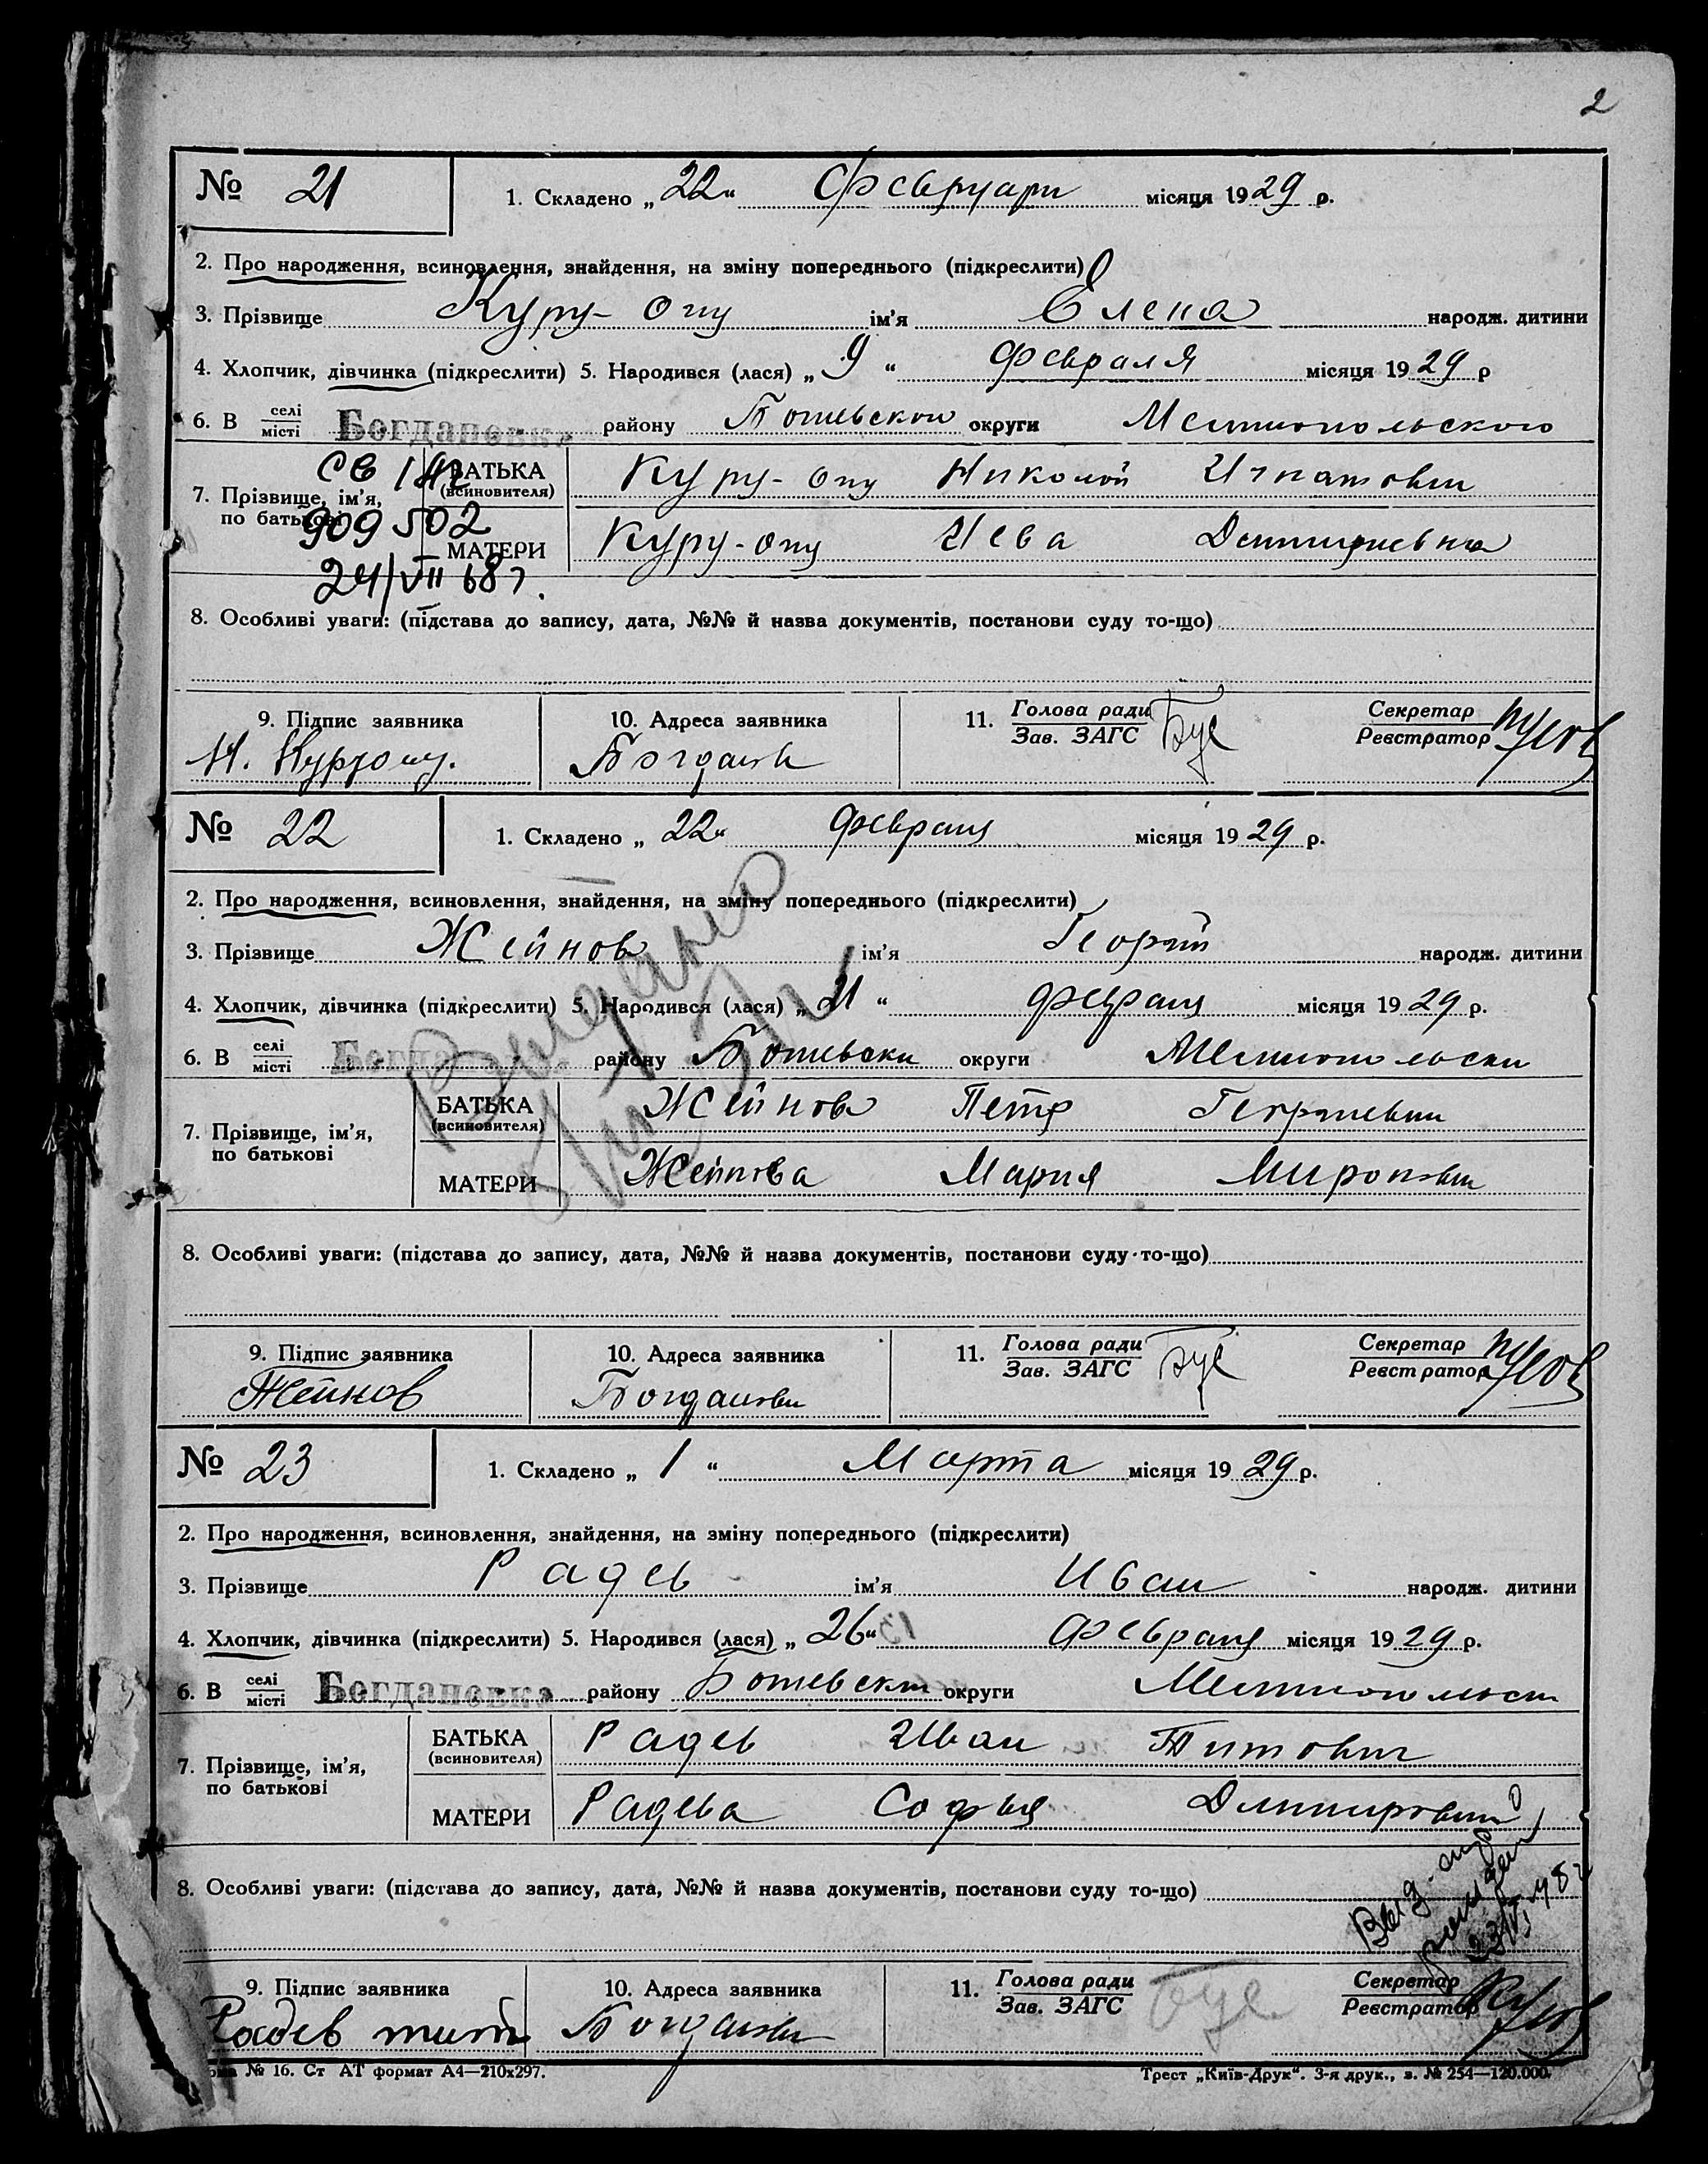 2
№ 21 1. Складено „22“ Февруари місяця 1929 р.
2. Про народження, всиновлення, знайдення, на зміну попереднього (підкреслити)
3. Прізвище Куру-Огу ім'я Елена народж. дитини
4. Хлопчик, дівчинка (підкреслити) 5. Народився (лася) „9“ февраля місяця 1929 р
6. В селі/місті Богдановка району округи
7. Прізвище, ім'я, по батькові
БАТЬКА (всиновителя) Куру-Огу Николай Игнатович
МАТЕРИ Куру-огу Дмитриевна
909502
24/VII 68 г.
8. Особливі уваги: (підстава до запису, дата, №№ й назва документів, постанови суду то-що)
9. Підпис заявника 10. Адреса заявника 11. Голова ради/Зав. ЗАГС Секретар/Реєстратор
№ 22 1. Складено „22“ февраля місяця 1929 р.
2. Про народження, всиновлення, знайдення, на зміну попереднього (підкреслити)
3. Прізвище Жейнов ім'я Георгий народж. дитини
4. Хлопчик, дівчинка (підкреслити) 5. Народився (лася) „21“ февраля місяця 1929 р.
6. В селі/місті району округи
7. Прізвище, ім'я, по батькові
БАТЬКА (всиновителя) Жейнов Петр Георгиевич
МАТЕРИ Жейнова Мария
8. Особливі уваги: (підстава до запису, дата, №№ й назва документів, постанови суду то-що)
9. Підпис заявника 10. Адреса заявника 11. Голова ради/Зав. ЗАГС Секретар/Реєстратор
Жейнов
№ 23 1. Складено „1“ Марта місяця 1929 р.
2. Про народження, всиновлення, знайдення, на зміну попереднього (підкреслити)
3. Прізвище Радев ім'я Иван народж. дитини
4. Хлопчик, дівчинка (підкреслити) 5. Народився (лася) „26“ февраля місяця 1929 р.
6. В селі/місті Богдановка району округи
7. Прізвище, ім'я, по батькові
БАТЬКА (всиновителя) Радев Иван Титович
МАТЕРИ Радева Софья
8. Особливі уваги: (підстава до запису, дата, №№ й назва документів, постанови суду то-що)
9. Підпис заявника 10. Адреса заявника 11. Голова ради/Зав. ЗАГС Секретар/Реєстратор
Радев
№ 16. Ст АТ формат А4—210х297. Трест „Київ-Друк“. 3-я друк., з. № 254—120.000.